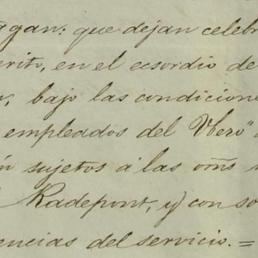 rgan: que dejan celebr
erito, en el exordio de
, bajo las condicione
empleados del Vbero"
n sujetos a las oms
Radepont, y con so
encias del servicio. =